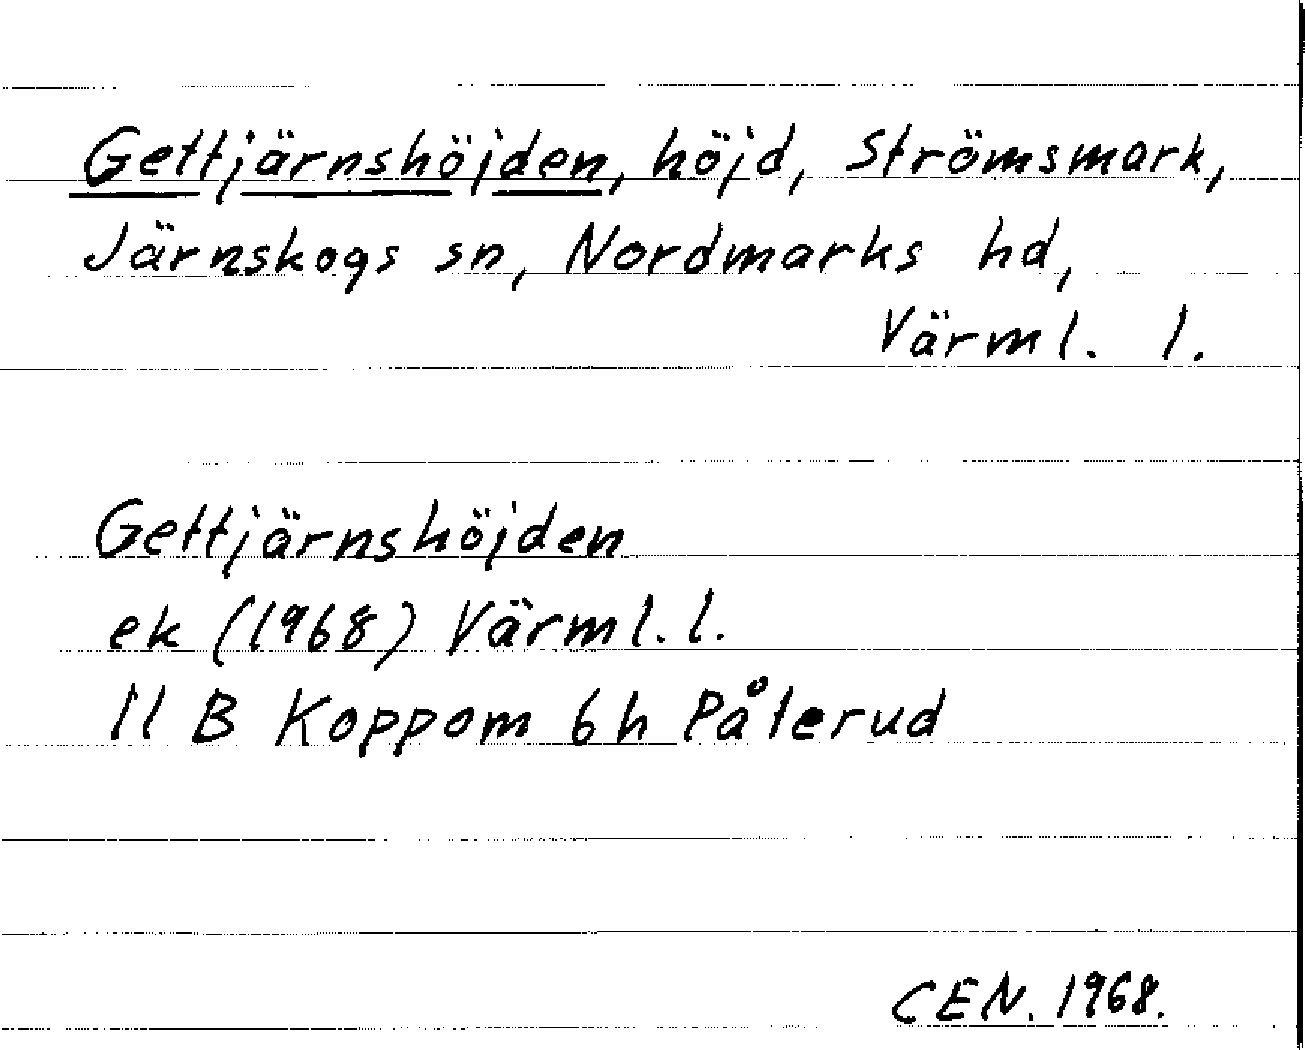 Gettjärnshöjden, höjd, Strömsmark,
Järnskogs sn, Nordmarks hd,
Värml. l.
Gettjärnshöjden
ek (1968) Värml. l.
11 B Koppom 6h Pålerud
CEN. 1968.